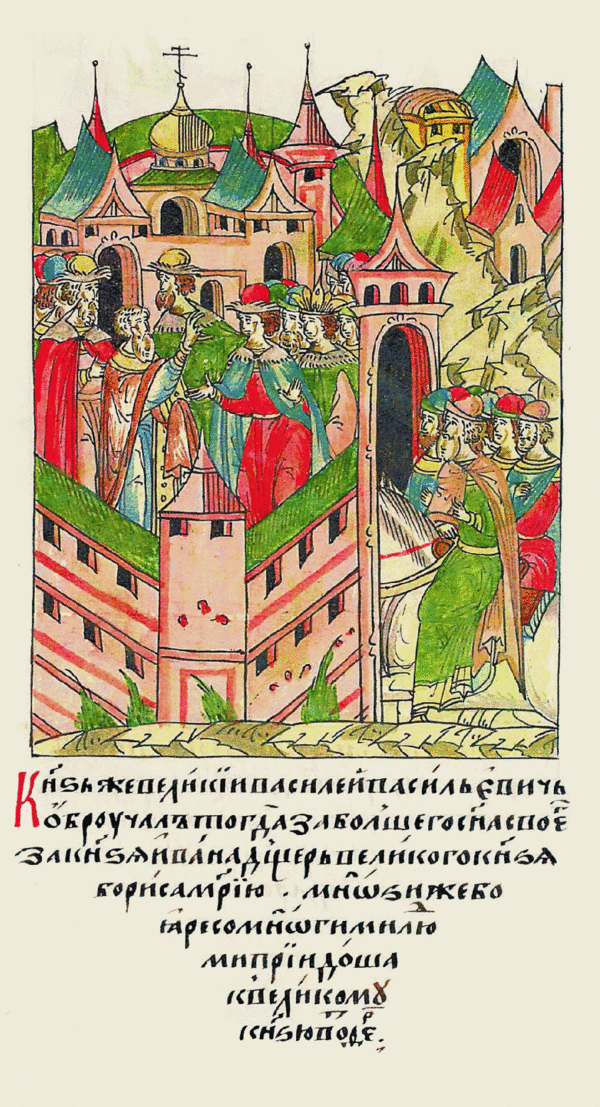 Кн҃зь же великїи василеи васильевичь
ѻброучалъ тогда за болшего сн҃а своег
за кн҃зѧ и҆ва́на дщерь великого кн҃зѧ
бориса мр҃їю . мнѡѕи же бо
ꙗре со мнѡгими лю
ми прїидо́ша
к великомꙋ
кн҃зю по дер.